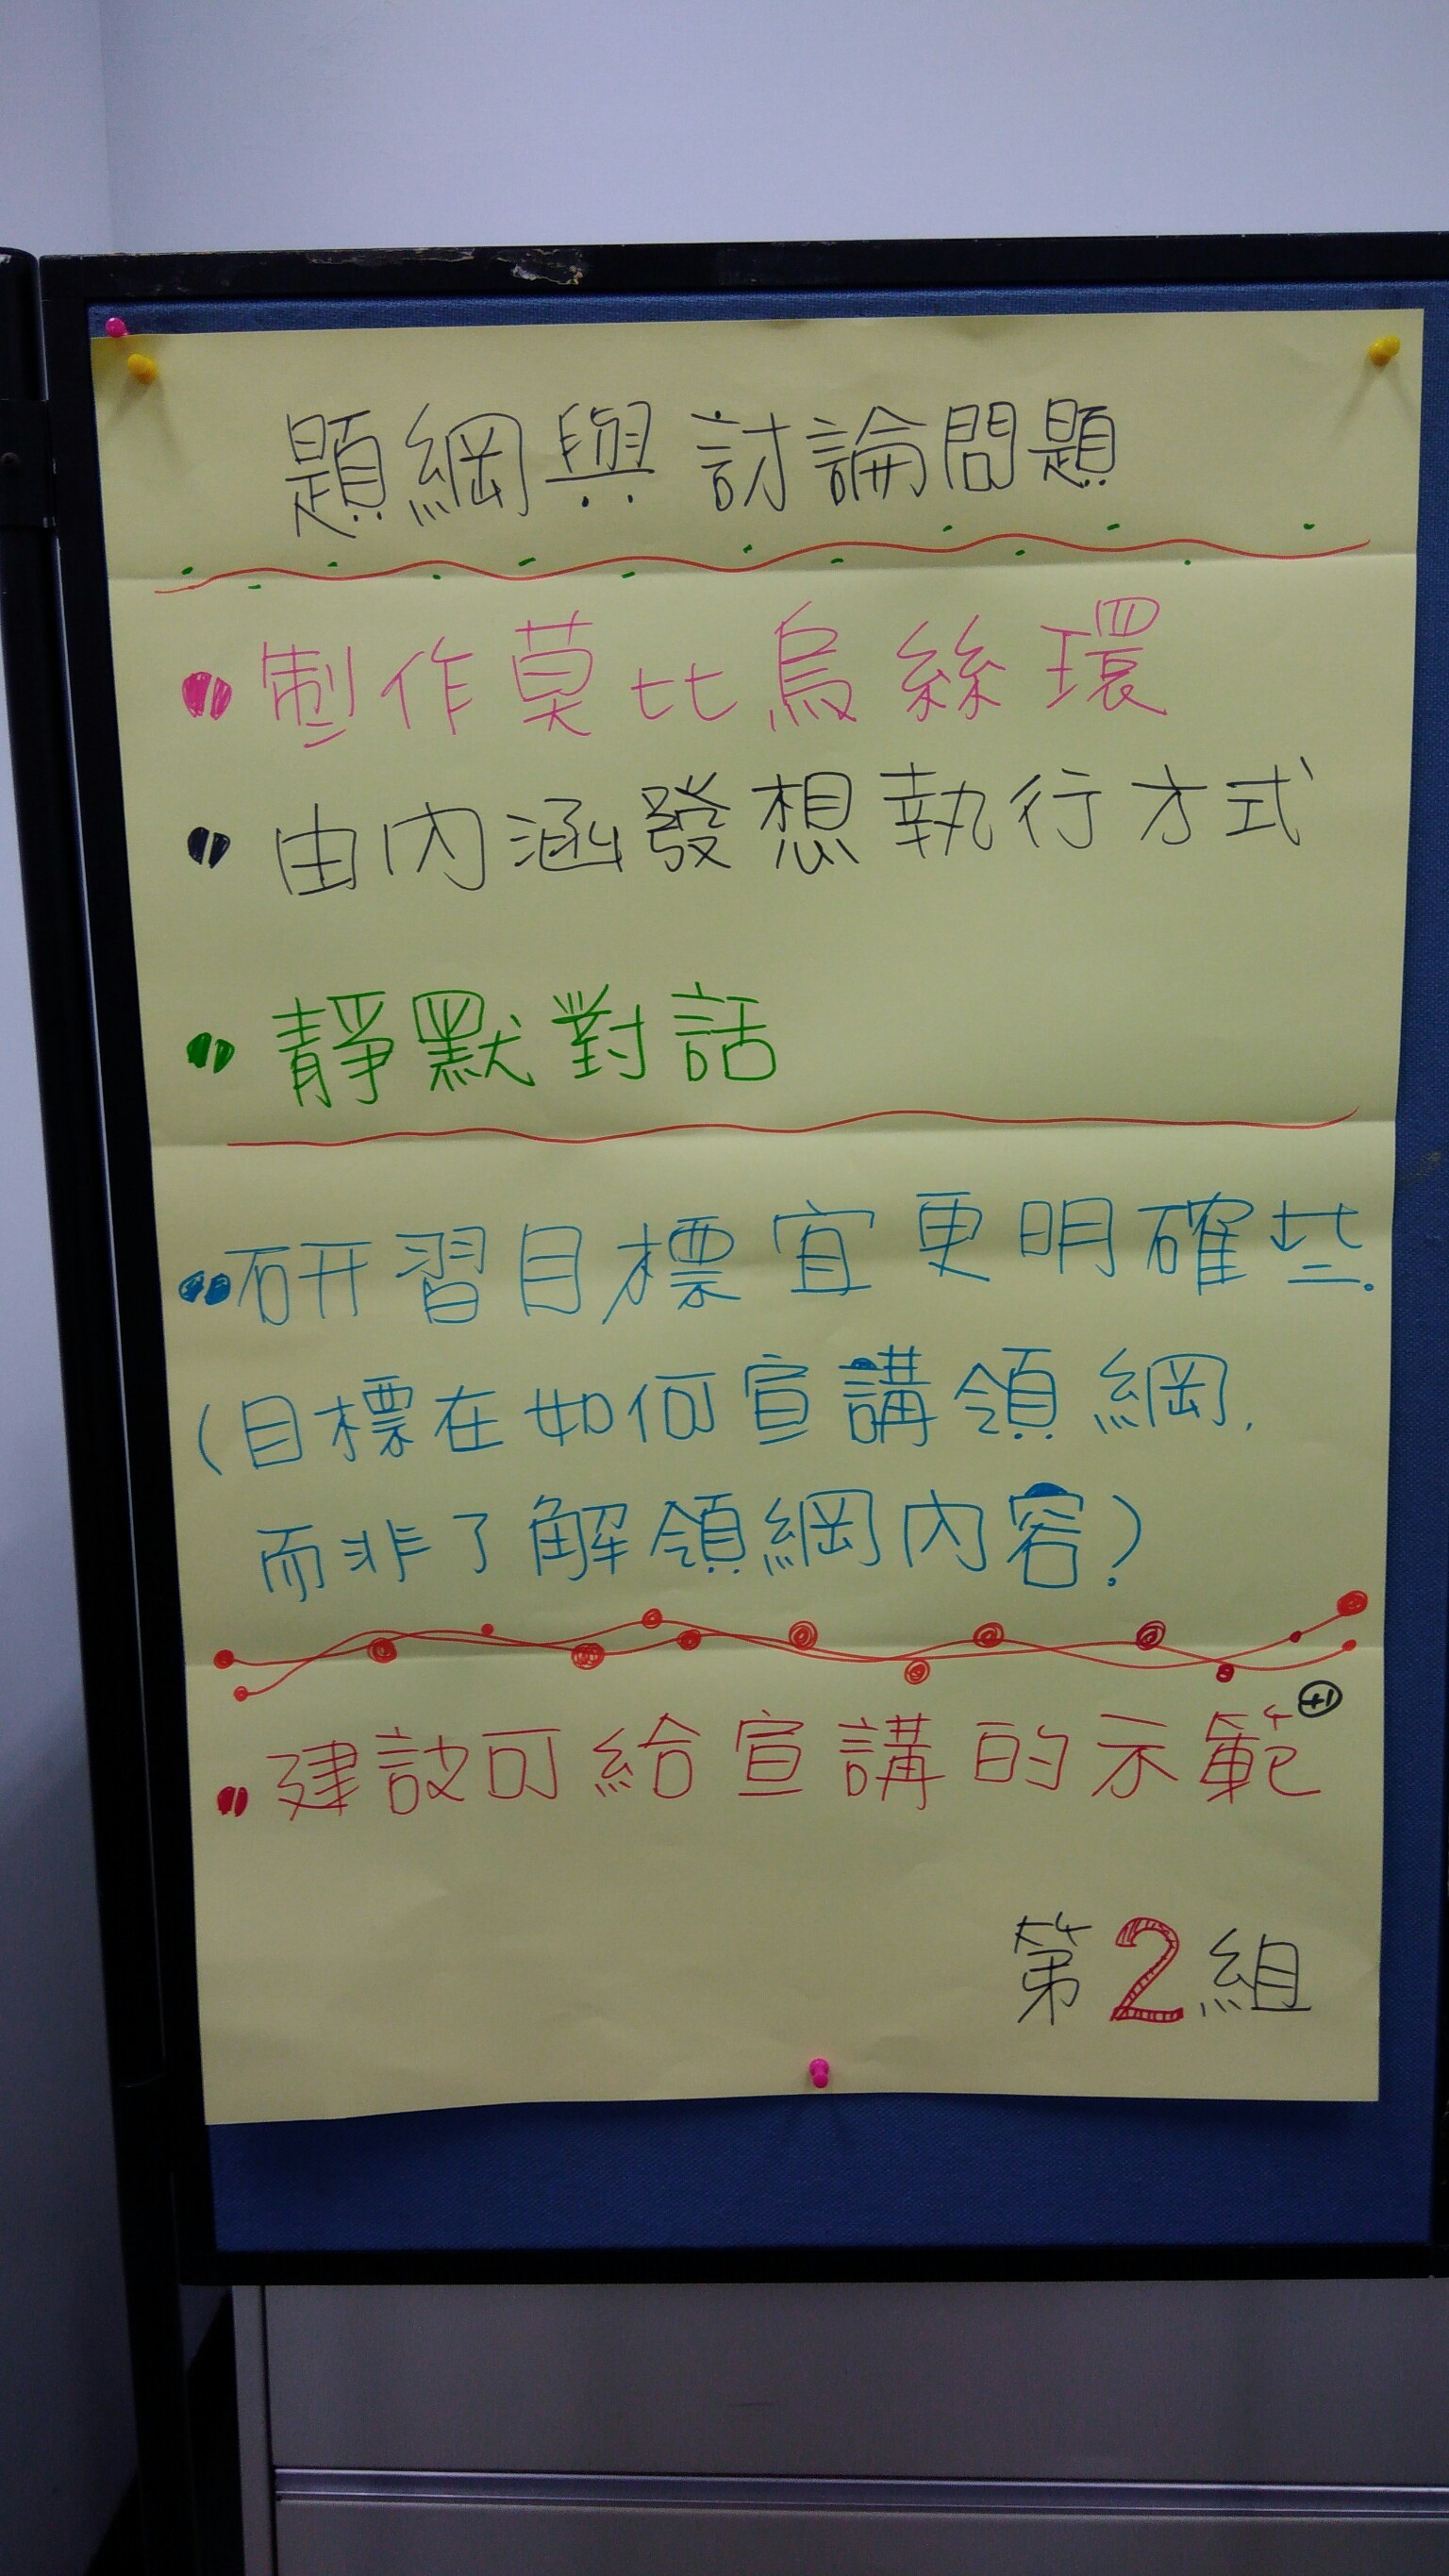 題綱與討論問題
製作莫比烏絲環
由內涵發想執行方式
靜默對話
研習目標宜更明確些.
(目標在如何宣講領綱,
而非了解領綱內容?)
+1
建設可給宣講的示範
第2組